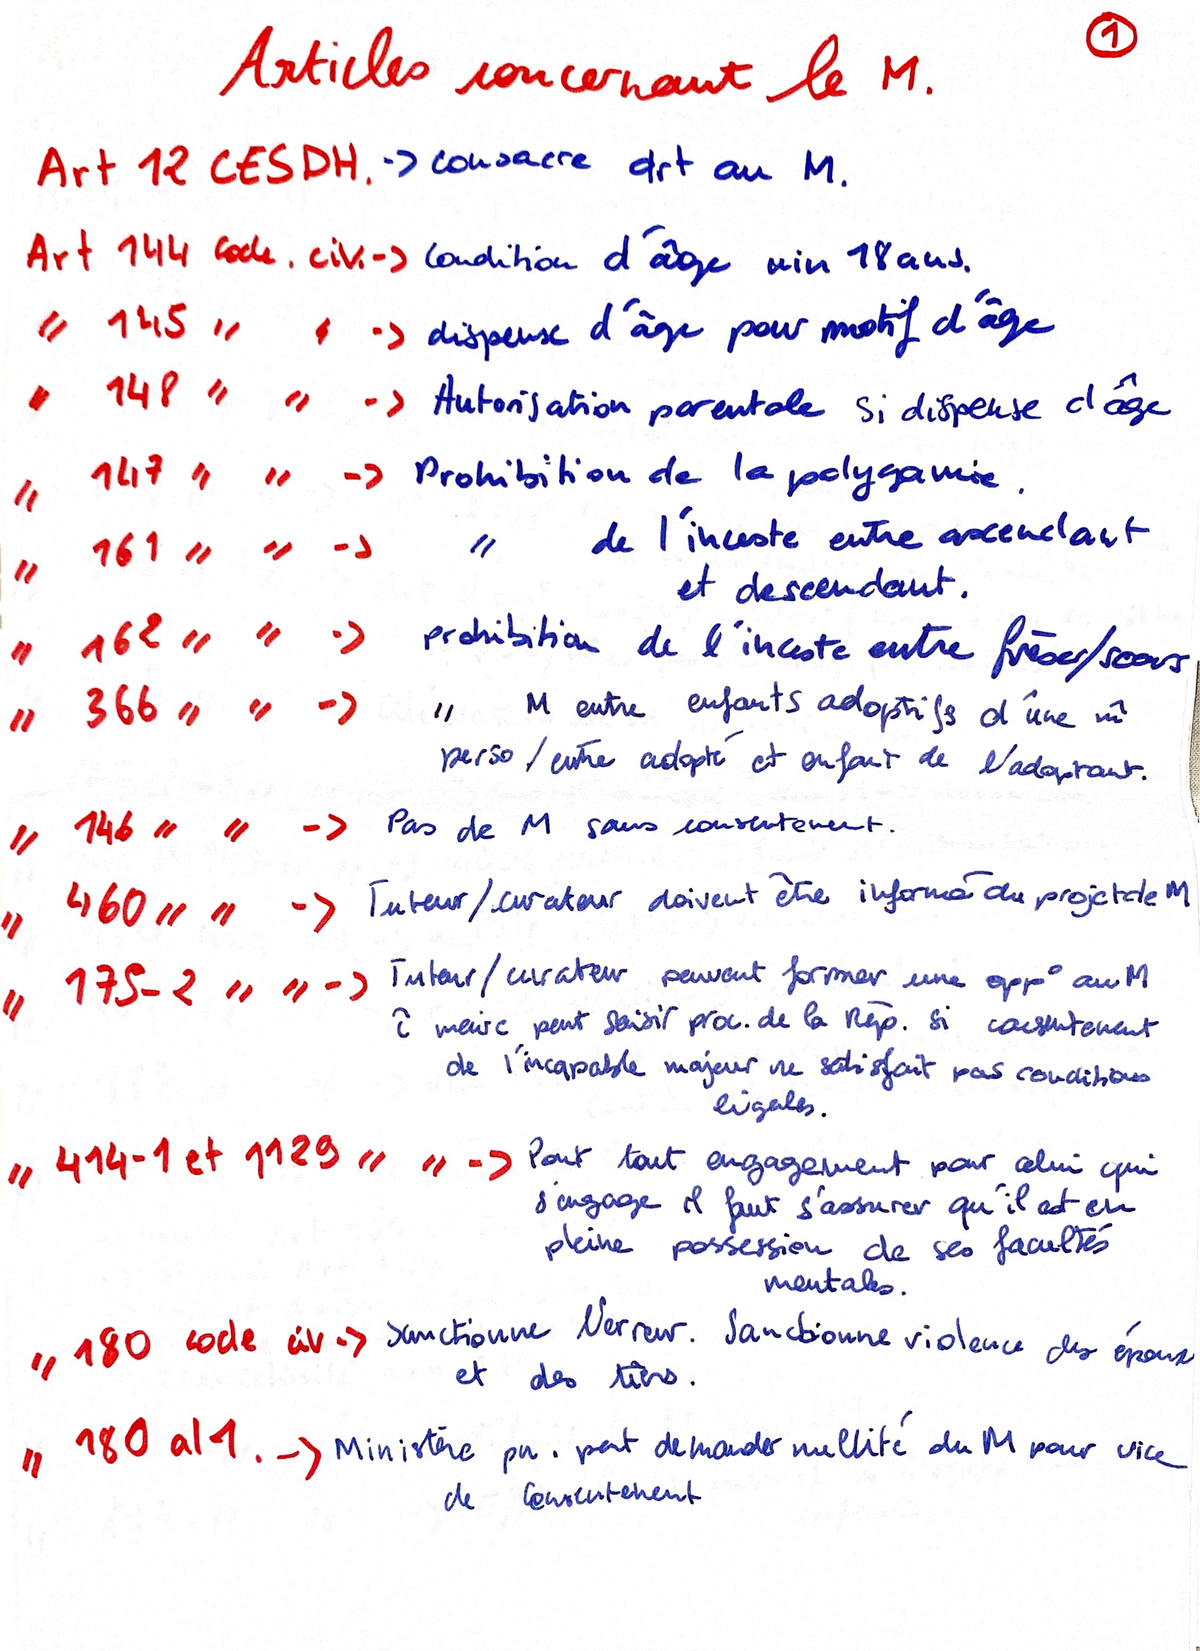 1
Articles concernant le M.
Art 12 CESDH. -> consacre drt au M.
Art 144 code. civ. -> Condition d'âge min 18 ans.
" 145 " " -> dispense d'âge pour motif d'âge
" 148 " " -> Autorisation parentale si dispense d'âge
" 147 " " -> Prohibition de la polygamie.
" 161 " " -> " de l'inceste entre ascendant
et descendant.
" 162 " " -> prohibition de l'inceste entre frères/sœurs
" 366 " " -> " M entre enfants adoptifs d'une m̂
perso / entre adopté et enfant de l'adoptant.
" 146 " " -> Pas de M sans consentement.
" 460 " " -> Tuteur/curateur doivent être informé du projet de M
" 175-2 " " -> Tuteur/curateur peuvent former une opp° au M
ĉ maire peut saisir proc. de la Rép. si consentement
de l'incapable majeur ne satisfait pas conditions
légales.
" 414-1 et 1129 " " -> Pour tout engagement pour celui qui
s'engage il faut s'assurer qu'il est en
pleine possession de ses facultés
mentales.
" 180 code civ -> Sanctionne l'erreur. Sanctionne violence des époux
et des tiers.
" 180 al 1. -> Ministère pu. peut demander nullité du M pour vice
de consentement